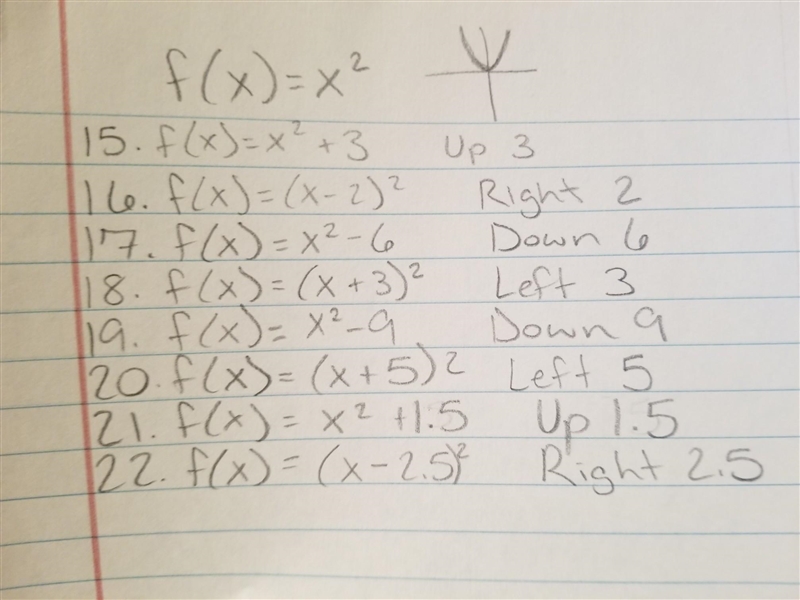 f(x)=x²
15. f(x)=x²+3 Up 3
16. f(x)=(x-2)² Right 2
17. f(x)=x²-6 Down 6
18. f(x)=(x+3)² Left 3
19. f(x)=x²-9 Down 9
20. f(x)=(x+5)² Left 5
21. f(x)=x²+1.5 Up 1.5
22. f(x)=(x-2.5)² Right 2.5